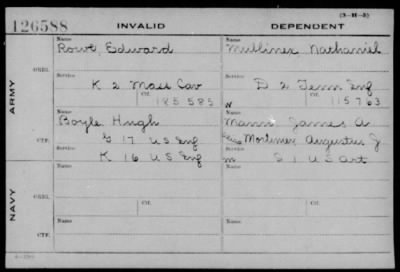 (3-H-5)
126588
INVALID
DEPENDENT
Name
Rowe, Edward
Name
Mulliner Nathaniel
ARMY
ORIG.
Service
K 2 Mass Cav
Service
D 2 Tenn Inf
Ctf.
185585
W
Ctf.
115763
Name
Boyle Hugh
Name
Mann James A
CTF.
G 17 U S Inf
Mortimer Augustus J
K 16 U S Inf
m
S 1 U S art
NAVY
ORIG.
Name
Name
Service
Service
Ctf.
Ctf.
CTF.
Name
Name